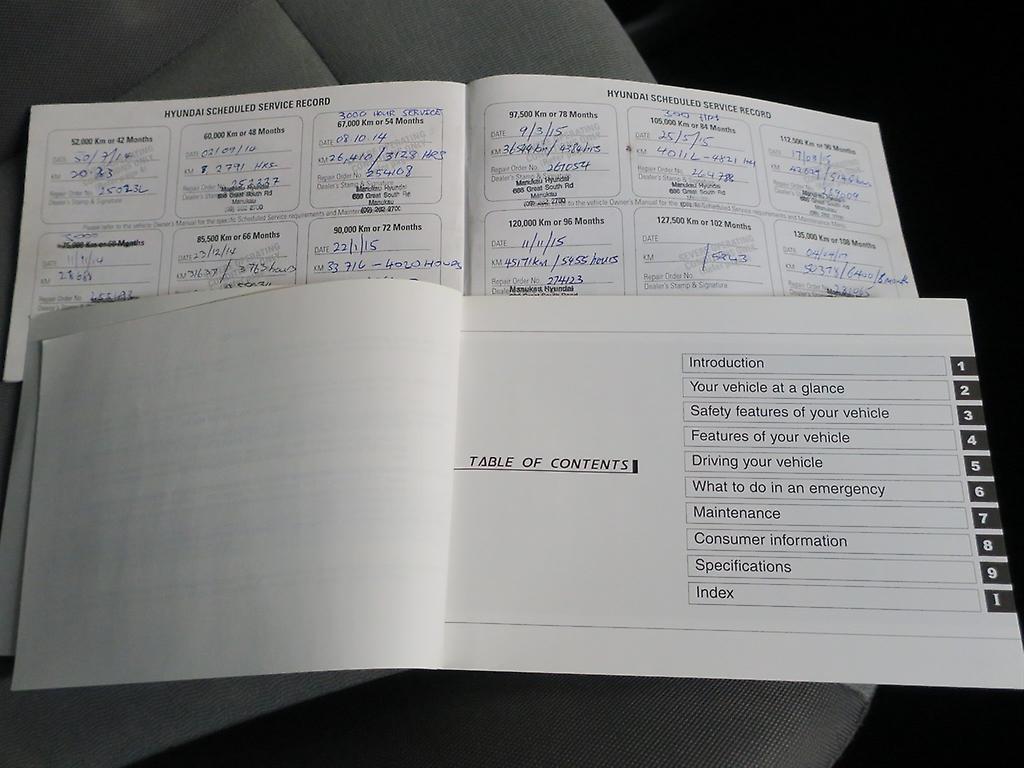 HYUNDAI SCHEDULED SERVICE RECORD
52,000 Km or 42 Months
DATE 30/7/14
KM
Repair Order No. 25023L
Dealer's Stamp & Signature
60,000 Km or 48 Months
DATE 02/09/14
KM 2791 HRS
Repair Order No.
Manukau Hyundai
686 Great South Rd
Manukau
(09) 262 2700
3000 HOUR SERVICE
67,000 Km or 54 Months
DATE 08.10.14
KM 26,410/3128 HRS
Repair Order No. 254108
Dealer's Stamp &
Manukau Hyundai
686 Great South Rd
Manukau
(09) 262 2700
Please refer to the vehicle Owner's Manual for the specific Scheduled Service requirements and
3000
75,000 Km or 60 Months
DATE 11/11/14
KM 28688
Repair Order No.
85,500 Km or 66 Months
DATE 23/12/14
KM 31637 / 3763 hours
90,000 Km or 72 Months
DATE 22/1/15
KM 33716 - 4020 HOURS
HYUNDAI SCHEDULED SERVICE RECORD
97,500 Km or 78 Months
DATE 9/3/15
KM
Repair Order No. 261054
Dealer's Stamp &
Manukau Hyundai
686 Great South Rd
Manukau
(09) 262 2700
105,000 Km or 84 Months
DATE 25/5/15
KM 4011L - 4821 HRS
Repair Order No. 264788
Dealer's Stamp &
Manukau Hyundai
686 Great South Rd
Manukau
to the vehicle Owner's Manual for the
112,500 Km or 96 Months
DATE
KM
Repair Order No.
Dealer's Stamp &
Manukau Hyundai
686 Great South Rd
Manukau
120,000 Km or 96 Months
DATE 11/11/15
KM 45171km / 5455 hours
Repair Order No. 274123
Dealer's
Manukau Hyundai
127,500 Km or 102 Months
DATE
KM / 5843
Repair Order No.
Dealer's Stamp & Signature
135,000 Km or 108 Months
DATE
KM 50378/6400/
Repair Order No.
TABLE OF CONTENTS
Introduction 1
Your vehicle at a glance 2
Safety features of your vehicle 3
Features of your vehicle 4
Driving your vehicle 5
What to do in an emergency 6
Maintenance 7
Consumer information 8
Specifications 9
Index I